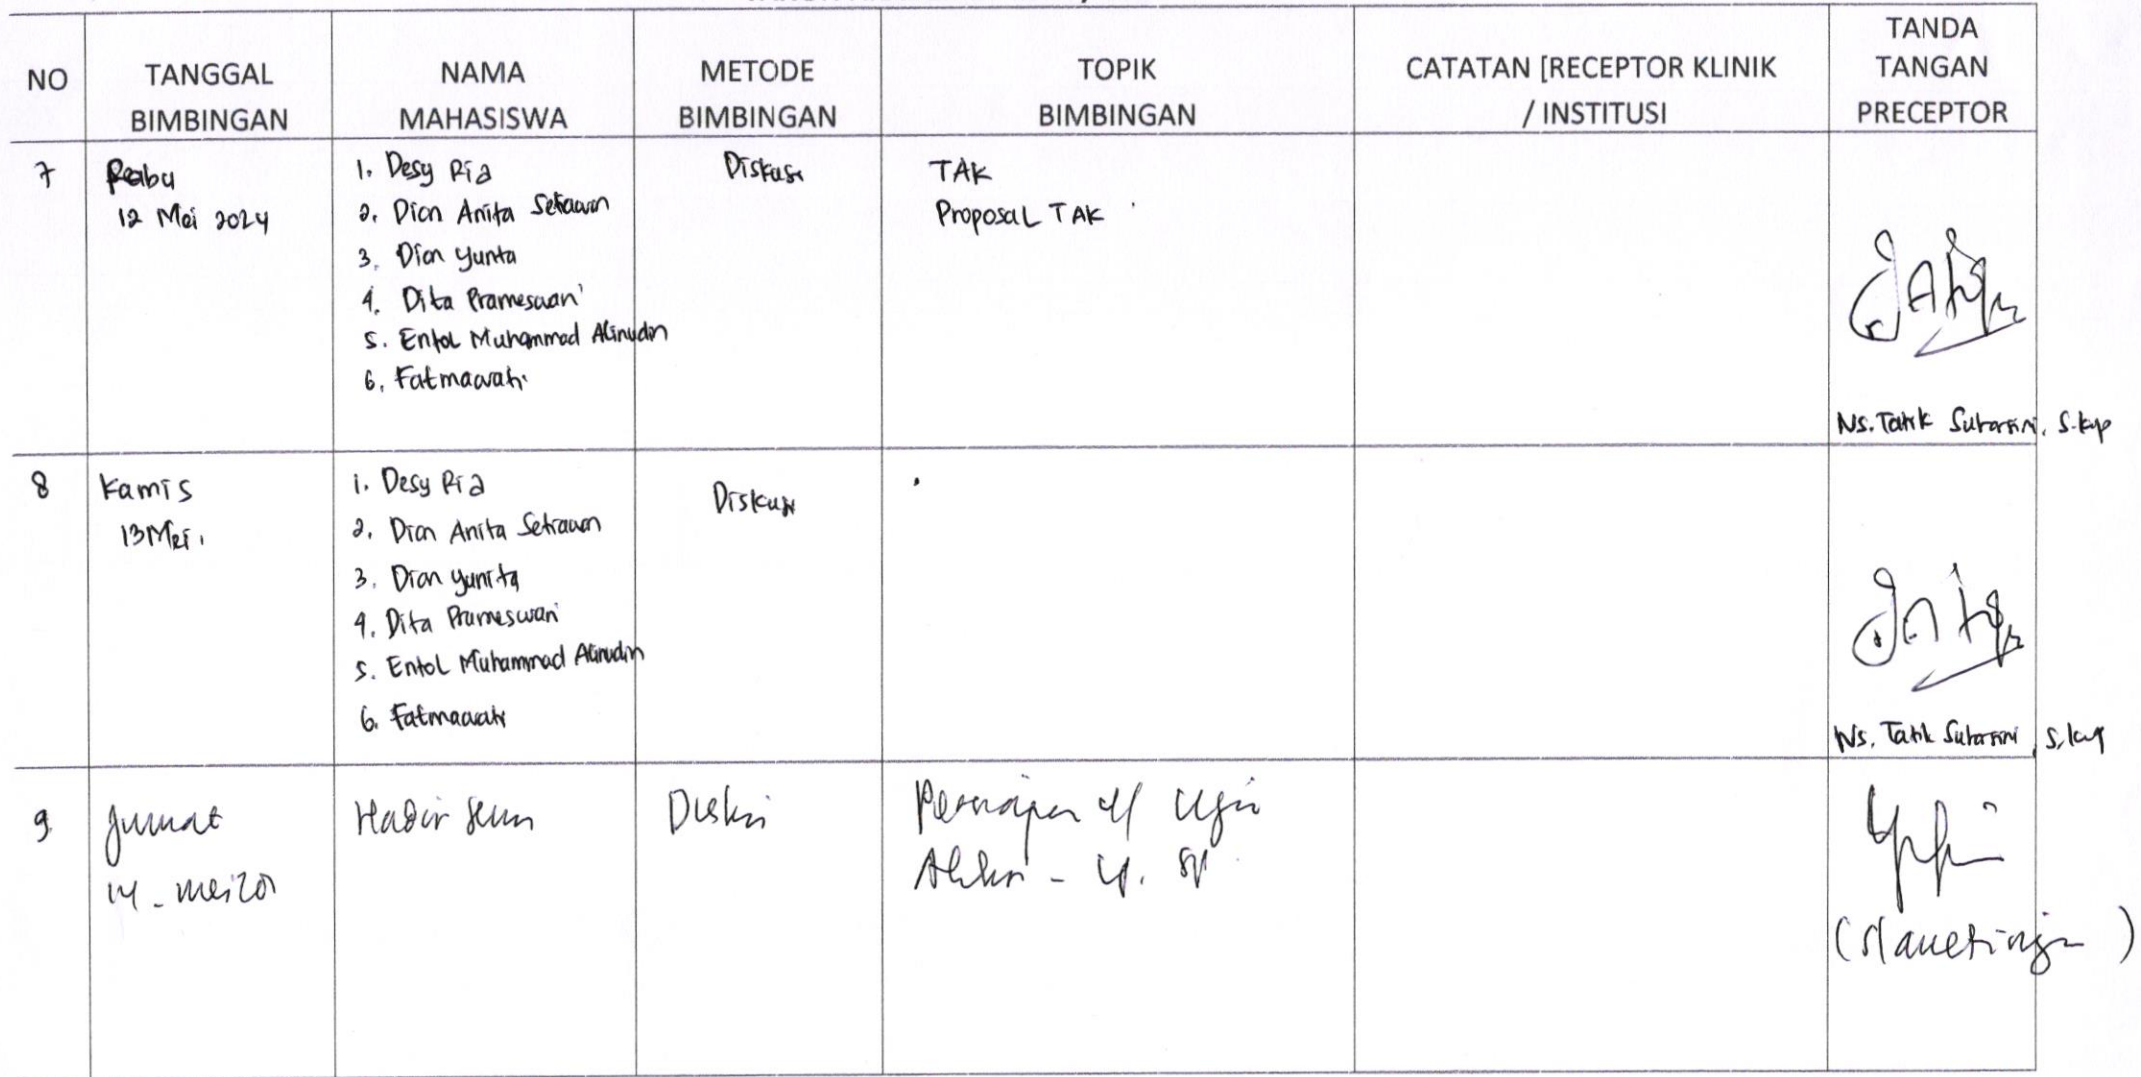 NO
TANGGAL
BIMBINGAN
NAMA
MAHASISWA
METODE
BIMBINGAN
TOPIK
BIMBINGAN
CATATAN [RECEPTOR KLINIK
/ INSTITUSI
TANDA
TANGAN
PRECEPTOR
7
Rabu
12 Mei 2024
1. Desy Ria
2. Dian Anita Setiawan
3. Dian Yunta
4. Dita Prameswari
5. Entol Muhammad Alinudin
6. Fatmawati
Diskusi
TAK
Proposal TAK
Ns. Tatik Sutarsini, S.kep
8
Kamis
13 Mei
1. Desy Ria
2. Dian Anita Setiawan
3. Dian Yunita
4. Dita Prameswari
5. Entol Muhammad Alinudin
6. Fatmawati
Diskusi
Ns. Tatik Sutarsini, S.kep
9
Jumat
14 - mei 20
Hadir